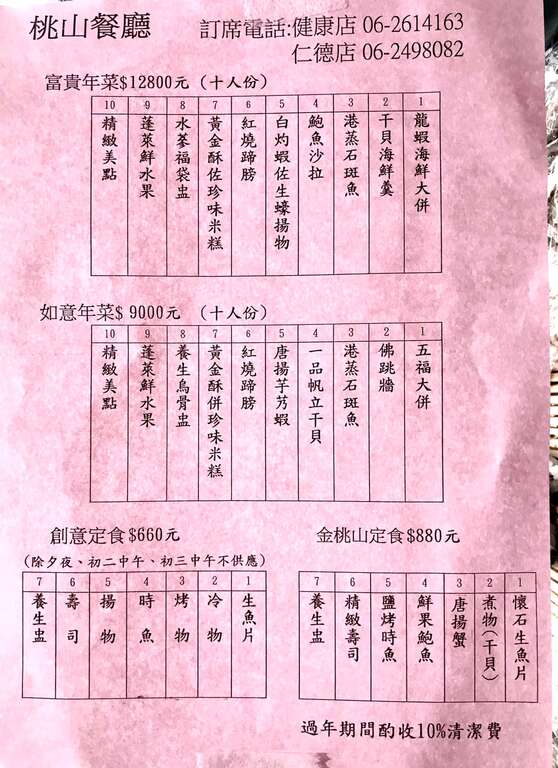 桃山餐廳
訂席電話:健康店 06-2614163
仁德店 06-2498082
富貴年菜$12800元（十人份）
1 龍蝦海鮮大併
2 干貝海鮮羹
3 港蒸石斑魚
4 鮑魚沙拉
5 白灼蝦佐生蠔揚物
6 紅燒蹄膀
7 黃金酥佐珍味米糕
8 水蔘福袋盅
9 蓬萊鮮水果
10 精緻美點
如意年菜$ 9000元 （十人份）
1 五福大併
2 佛跳牆
3 港蒸石斑魚
4 一品帆立干貝
5 唐揚芋艿蝦
6 紅燒蹄膀
7 黃金酥併珍味米糕
8 養生烏骨盅
9 蓬萊鮮水果
10 精緻美點
創意定食$660元
（除夕夜、初二中午、初三中午不供應）
1 生魚片
2 冷物
3 烤物
4 時魚
5 揚物
6 壽司
7 養生盅
金桃山定食$880元
1 懷石生魚片
2 煮物(干貝)
3 唐揚蟹
4 鮮果鮑魚
5 鹽烤時魚
6 精緻壽司
7 養生盅
過年期間酌收10%清潔費